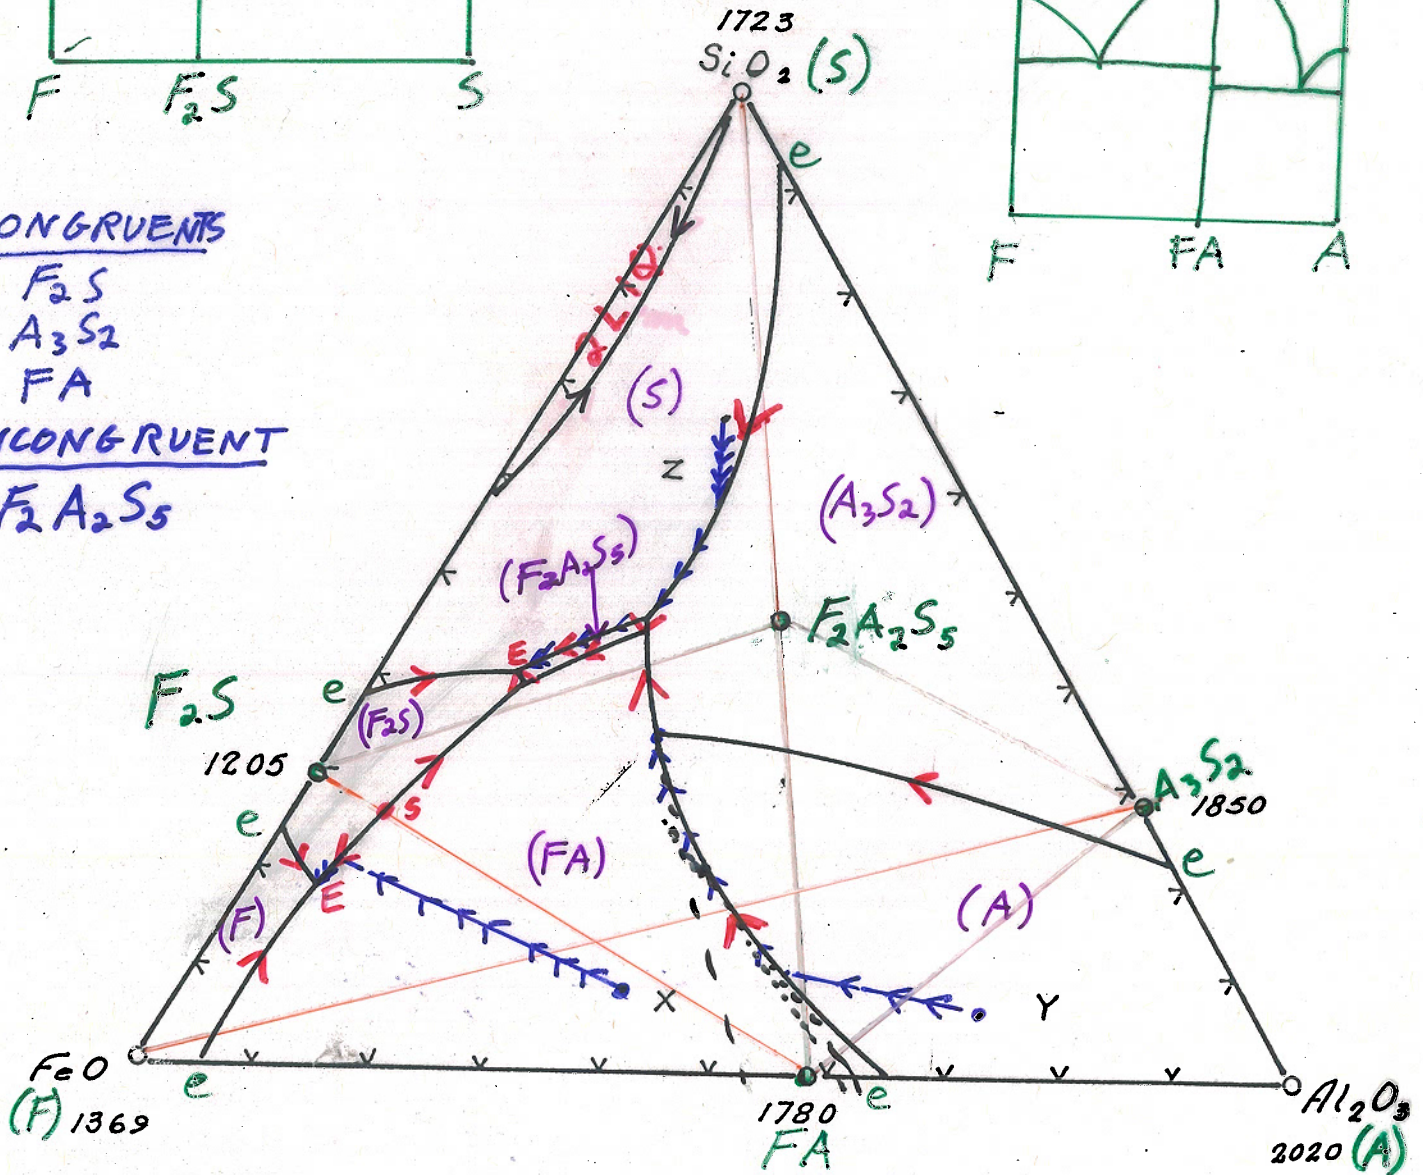 1723
SiO₂ (S)
F F₂S S
e
F FA A
ONGRUENTS
F₂S
A₃S₂
FA
NCONGRUENT
F₂A₂S₅
2 L Q
(S)
Z
(A₃S₂)
(F₂A₂S₅)
F₂A₂S₅
E
e
F₂S
(F₂S)
1205
A₃S₂
1850
S
e
(FA)
e
E
(F)
(A)
X
Y
FeO
(F) 1369
e
1780
FA
e
Al₂O₃
2020 (A)